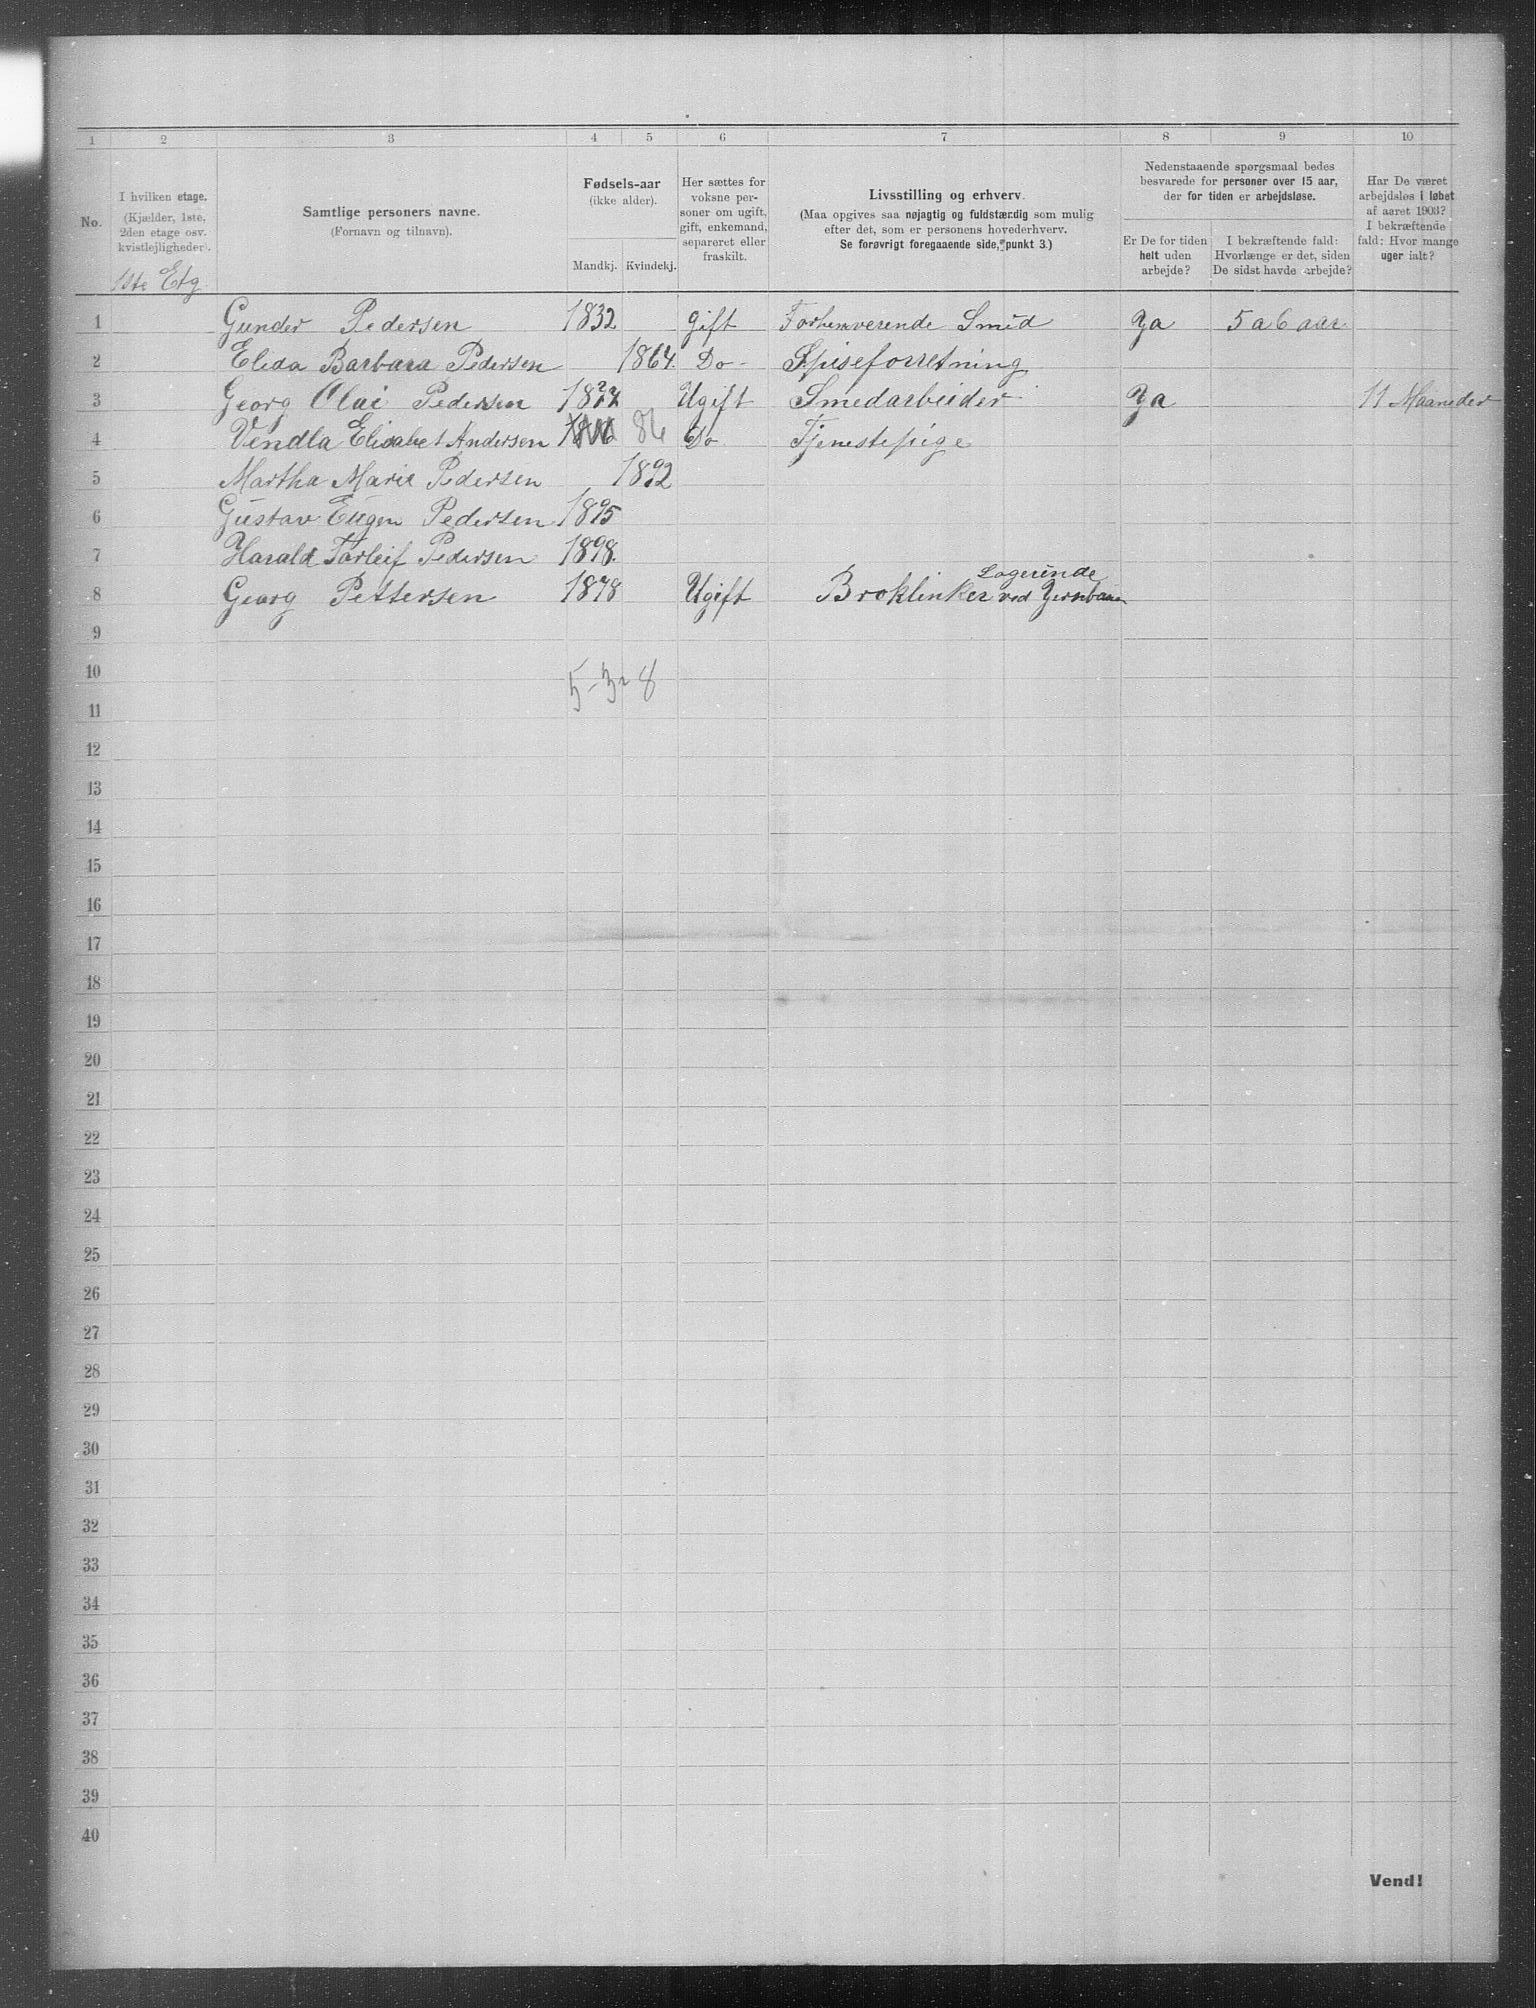 1 2 3 4 5 6 7 8 9 10
No.
I hvilken etage.
(Kjælder, 1ste,
2den etage osv.
kvistlejligheder).
1ste Etg
Samtlige personers navne.
(Fornavn og tilnavn).
Fødsels-aar
(ikke alder).
Mandkj. Kvindekj.
Her sættes for
voksne per-
soner om ugift,
gift, enkemand,
separeret eller
fraskilt.
Livsstilling og erhverv.
(Maa opgives saa nøjagtig og fuldstændig som mulig
efter det, som er personens hovederhverv.
Se forøvrigt foregaaende side, punkt 3.)
Nedenstaaende spørgsmaal bedes
besvarede for personer over 15 aar,
der for tiden er arbejdsløse.
Er De for tiden
helt uden
arbejde?
I bekræftende fald:
Hvorlænge er det, siden
De sidst havde arbejde?
Har De været
arbejdsløs i løbet
af aaret 1903?
I bekræftende
fald: Hvor mange
uger ialt?
1 Gunder Pedersen 1832 gift Forhenverende Smid Ja 5 a 6 aar
2 Elida Barbara Pedersen 1864. Do - Spiseforretning
3 Georg Olai Pedersen Ugift Smedarbeider Ja 11 Maaneder
4 Vendla Elisabet Andersen 86 Do Tjenestepige
5 Martha Marie Pedersen 1892
6 Gustav Eugen Pedersen 1895
7 Harald Torleif Pedersen 1898.
Logerende
8 Georg Pettersen 1878 Ugift Broklinker ved Jernbanen
9
10
5-3 8
11
12
13
14
15
16
17
18
19
20
21
22
23
24
25
26
27
28
29
30
31
32
33
34
35
36
37
38
39
40
Vend!